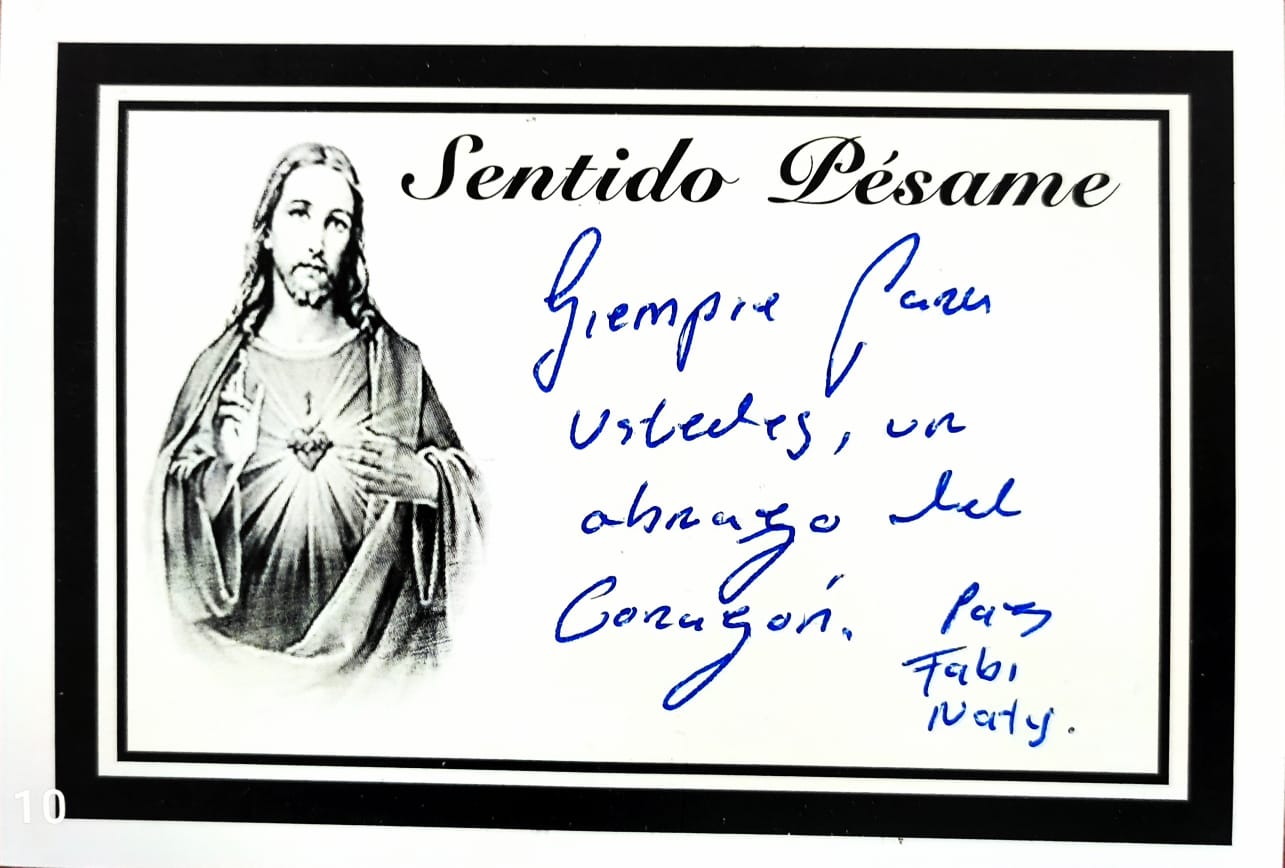 Sentido Pésame
Siempre para
ustedes, un
abrazo del
Corazón. Paz
Fabi
Naty.
10